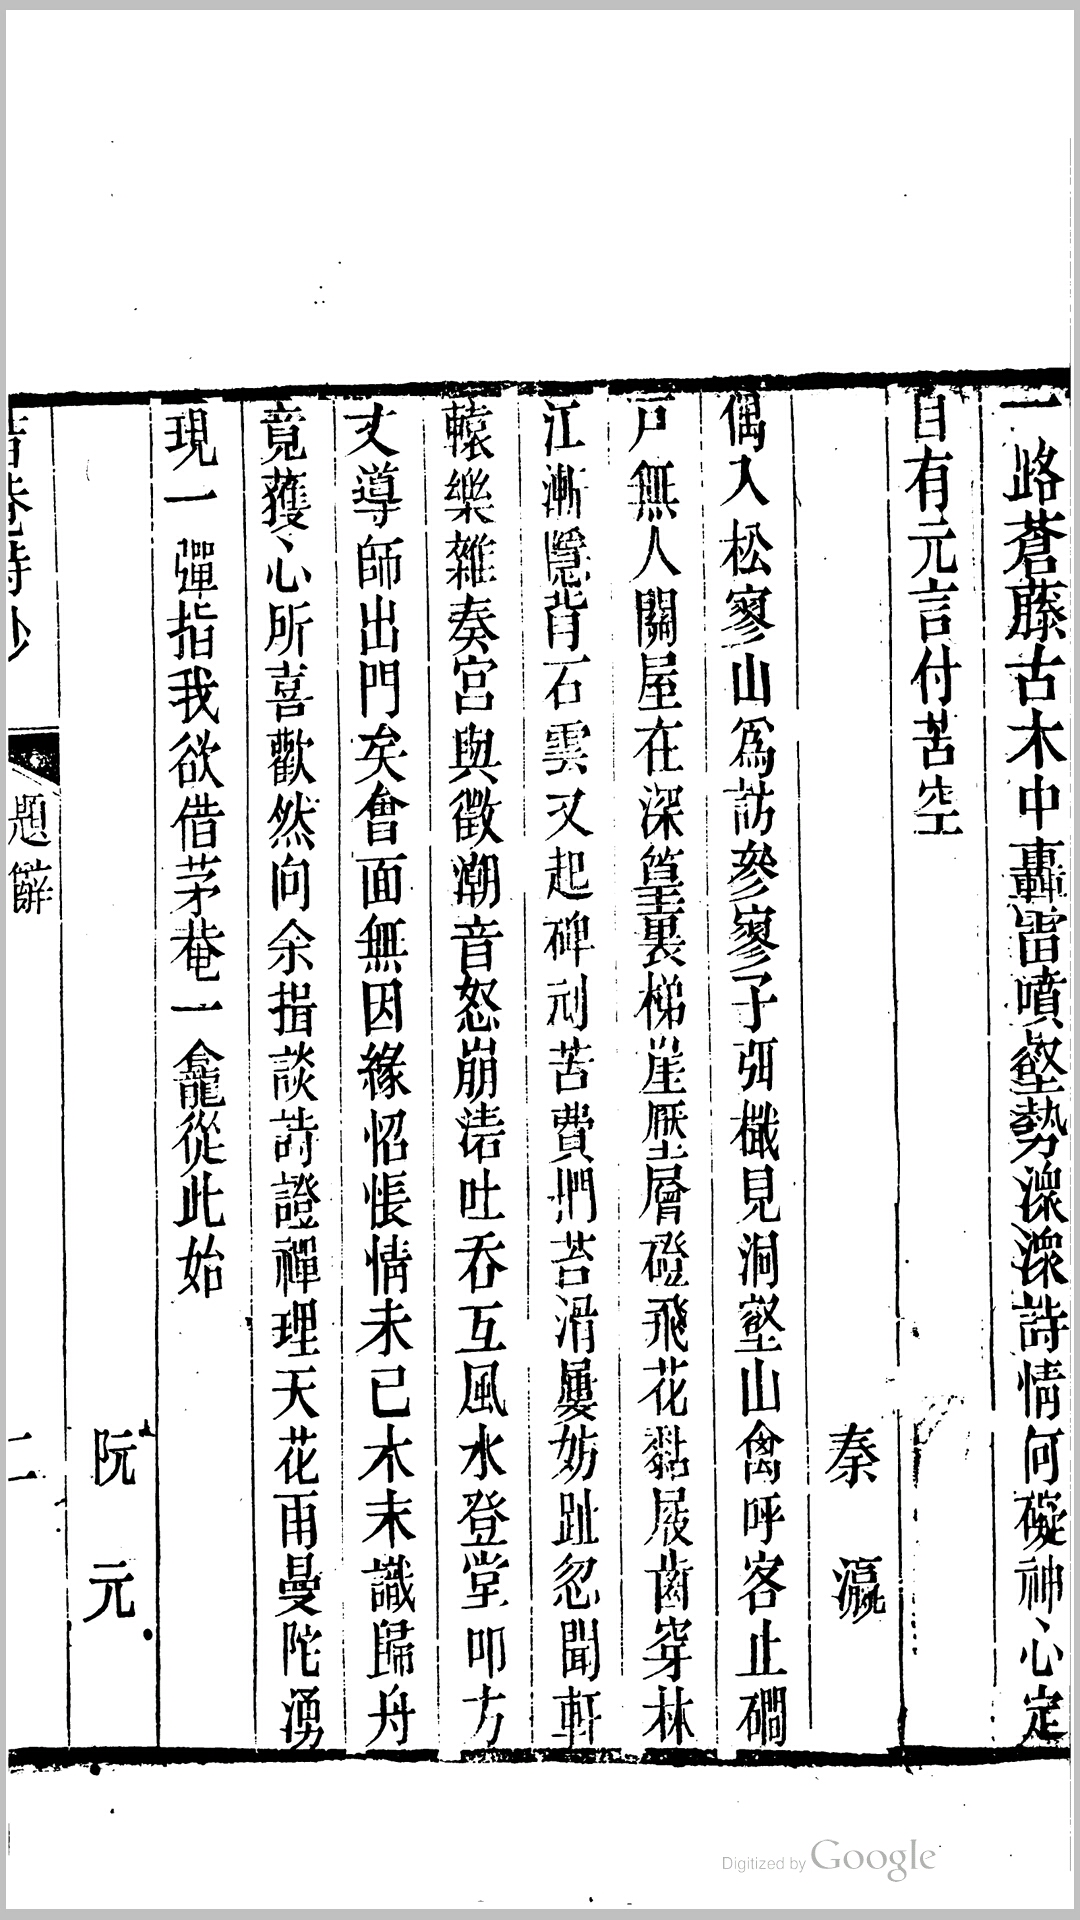 一路蒼藤古木中轟雷噴壑勢潨潨詩情何礙神心定
自有元言付苦空
秦瀛
偶入松寥山為訪參寥子弭檝見洞壑山禽呼客止磵
戸無人關屋在深篁裏梯崖壓層磴飛花黏屐齒穿林
江漸隱背石雲又起碑刓苦費捫苔滑屢妨趾忽聞軒
轅樂雜奏宮與徵潮音怒崩濤吐呑互風水登堂叩方
丈導師出門矣會面無因緣怊悵情未已木末識歸舟
竟獲心所喜歡然向余揖談詩證禪理天花雨曼陀湧
現一彈指我欲借茅菴一龕從此始
阮元
菴詩鈔
題辭
二
Digitized by Google